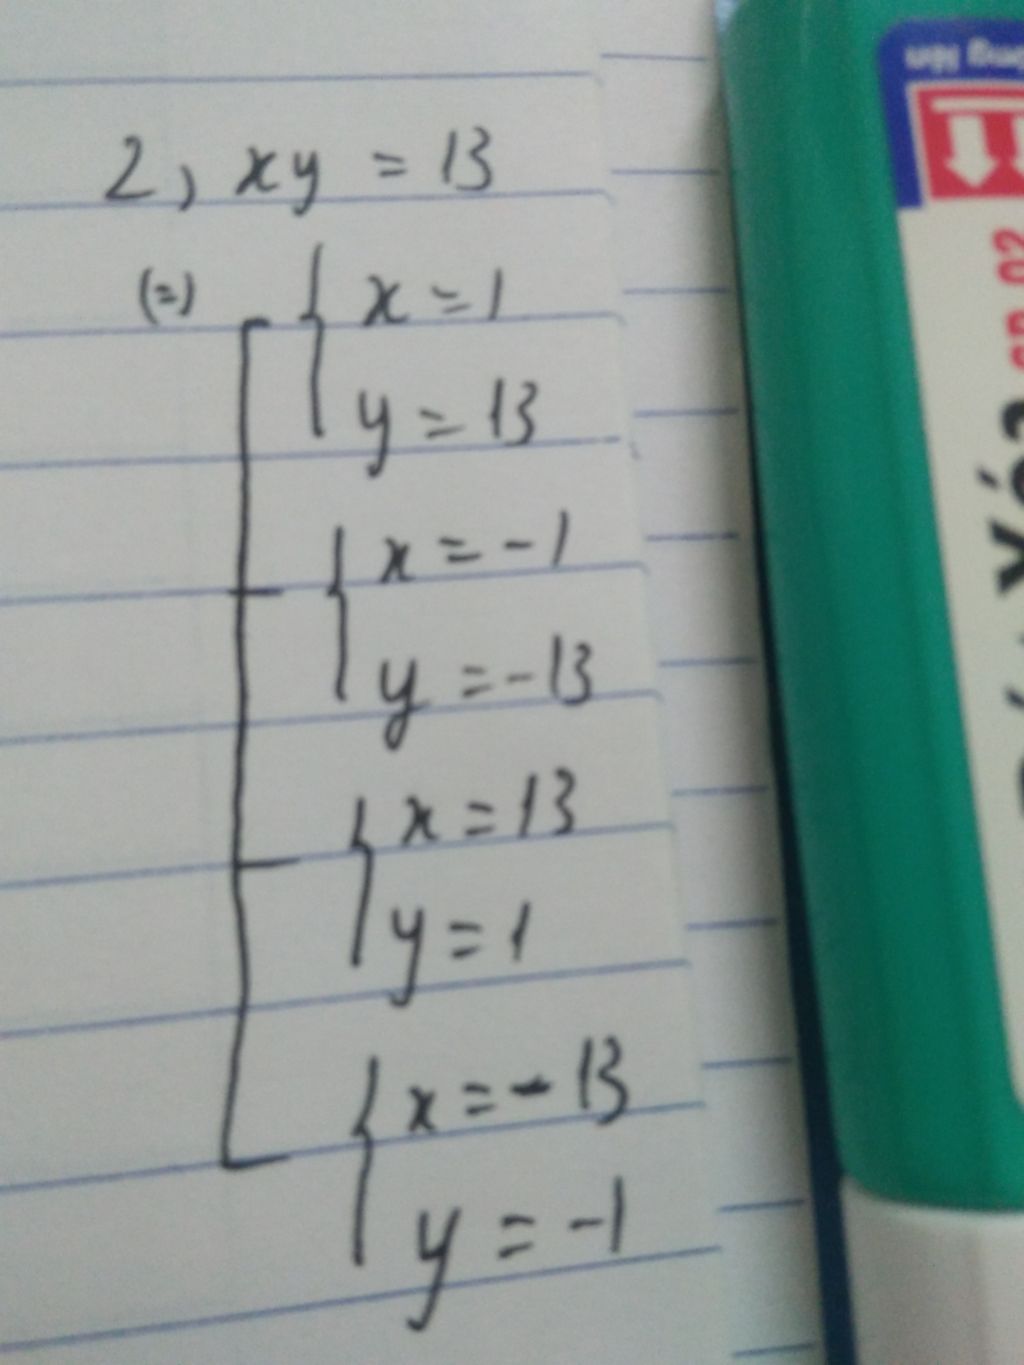 2, xy = 13
(=) { x = 1
y = 13
{ x = -1
y = -13
{ x = 13
y = 1
{ x = - 13
y = -1
Xóa
02